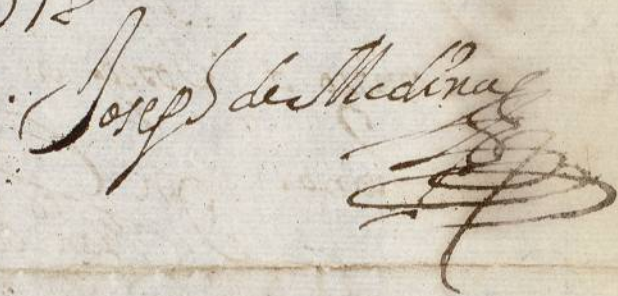 Joseph de Medina